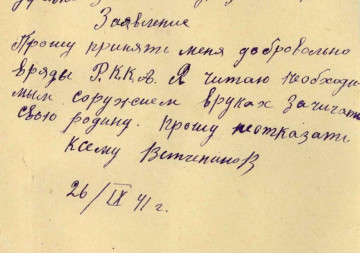 Заявление
Прошу принять меня добровольно
вряды Р.К.К.А. Я читаю необходи
мым соружием вруках зачичать
свою родину. прошу неотказать
ксему
26/IX 41 г.